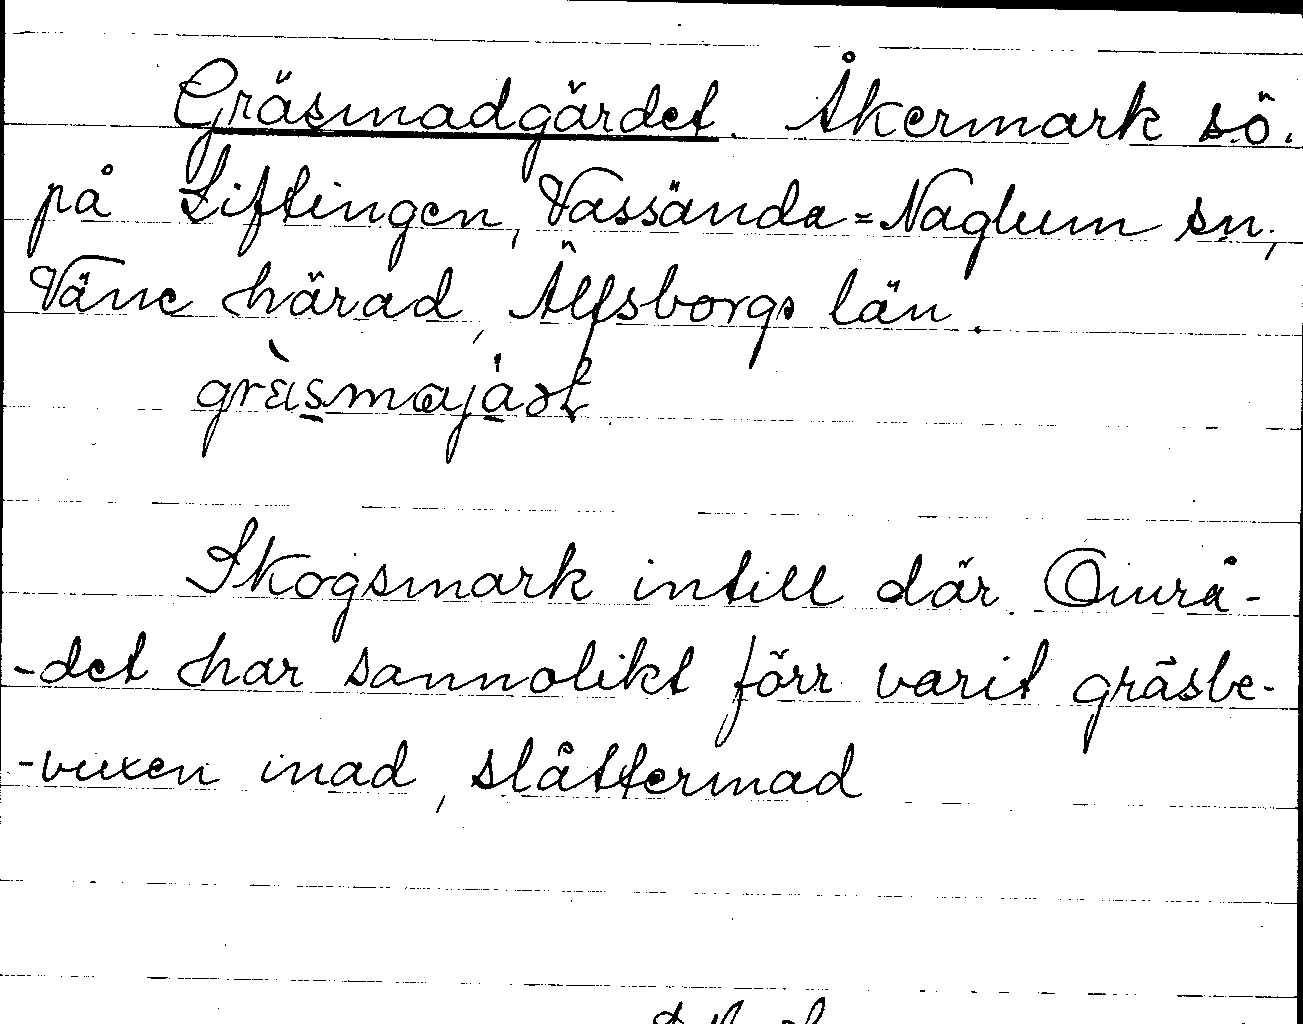 Gräsmadgärdet. Åkermark sö.
på Liftingen, Vassända=Naglum sn,
Väne härad, Älfsborgs län.
Skogsmark intill där. Områ-
-det har sannolikt förr varit gräsbe-
-vuxen mad, slåttermad